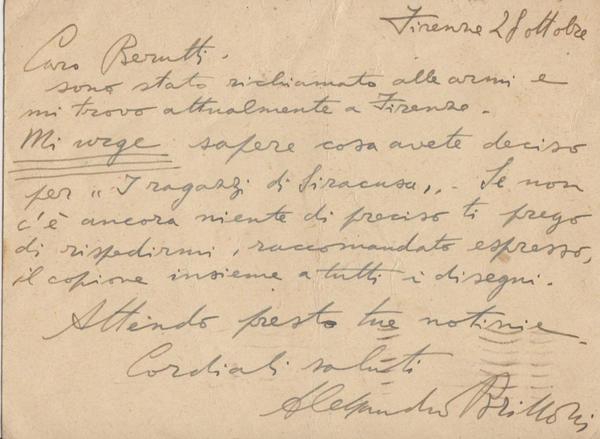 Firenze 28 ottobre
Caro Berutti.
sono stato richiamato alle armi e
mi trovo attualmente a Firenze.
Mi urge sapere cosa avete deciso
per „I ragazzi di Siracusa„. Se non
c'è ancora niente di preciso ti prego
di rispedirmi, raccomandato espresso,
il copione insieme a tutti i disegni.
Attendo presto tue notizie.
Cordiali saluti
Alessandro